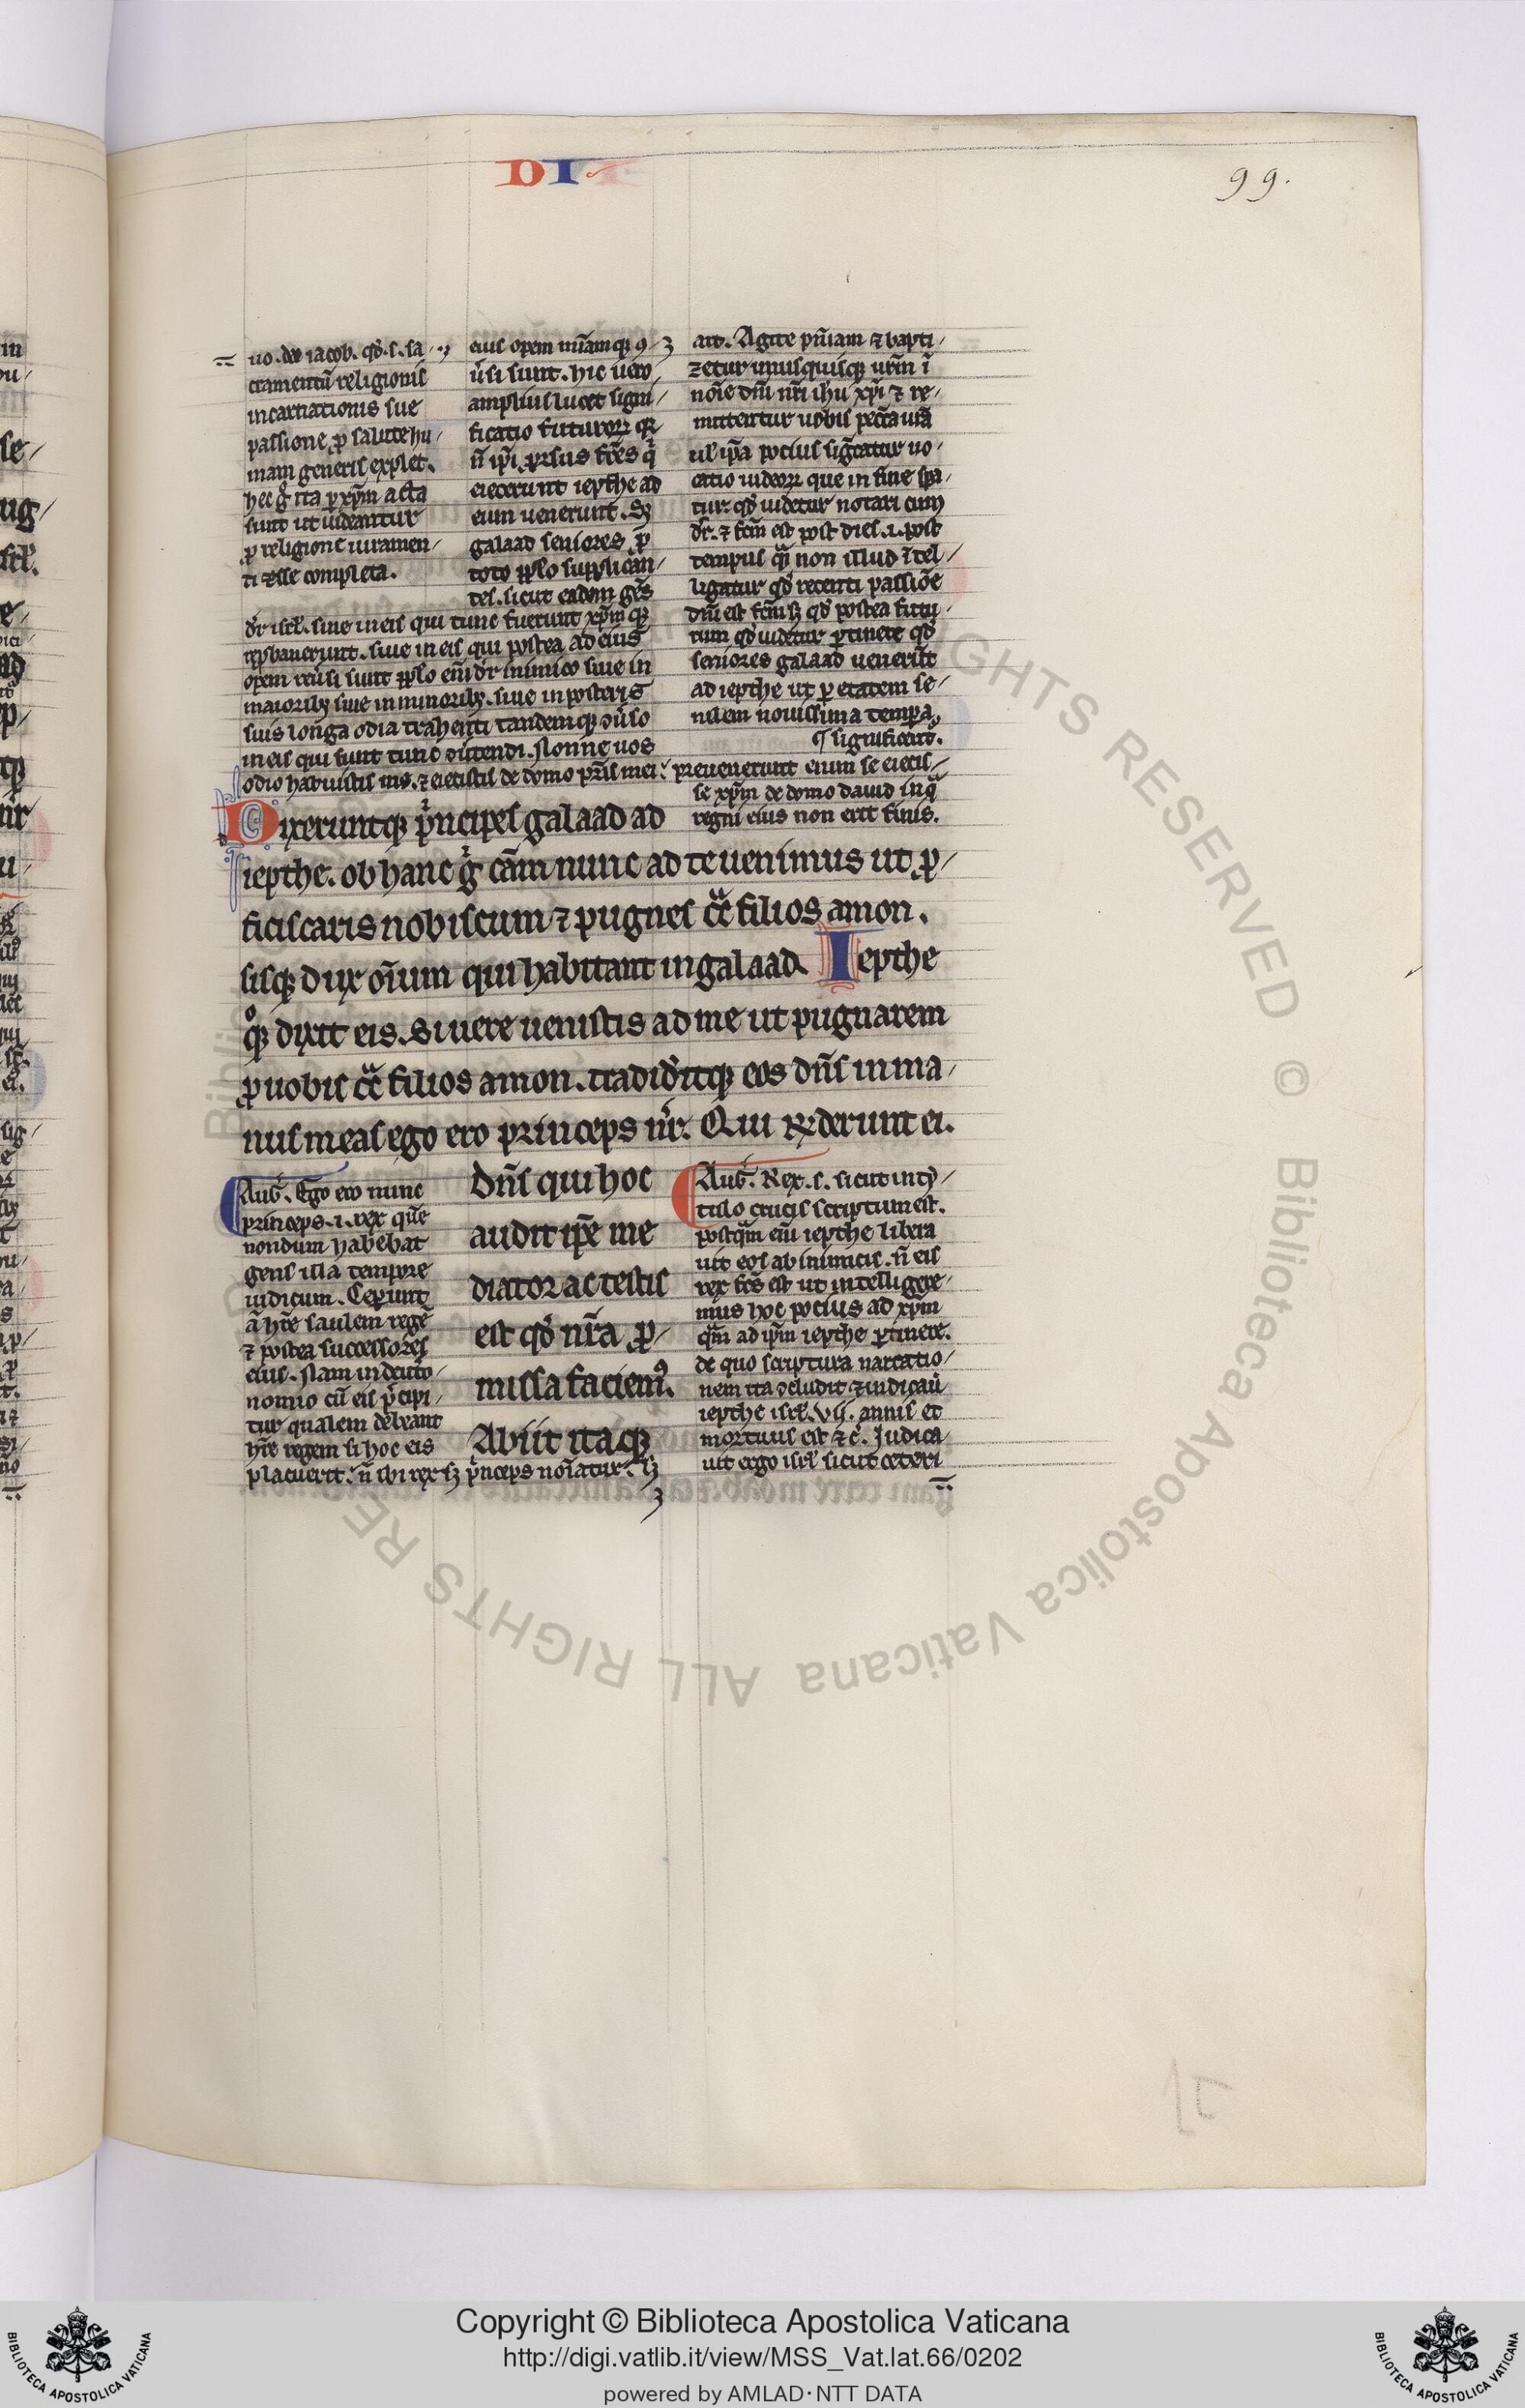 DI
99.
uo. deo iacob. qđ. s. sa
cramentū religionis
incarnationis sue
passione ꝓ salute hu
mani generis explet.
hec g̊ ita ꝑ xp̄m acta
sunt ut uideantur
ꝓ religione iuramen/
ti ee̅ completa.
eius opem unāmqꝫ ꝯ
ūsi sunt. hic uero
amplius lucet signi/
ficatio futuroꝝ qꝛ
n̄ ip̄i prorsus fr̄es q̇
eiecerunt iepthe ad
eum uenerunt. Sꝫ
galaad seniores ꝓ
toto pplo supplican/
tes. sicut eadem gēs
dr̄ isrl̄. siue in eis qui tunc fuerunt xp̄m qꝫ
repbauerunt. siue in eis qui postea ad eius
opem reūsi sunt pplo enī dr̄ inimico siue in
maioribꝫ siue in minoribꝫ. siue in posteris
suis longa odia trahenti tandemqꝫ ꝯūso
in eis qui sunt tunc ꝯūtendi. Nonne uos
odio habuistis me. ⁊ eiecistis de domo pr̄is mei.
ait. Agite pn̄iam ⁊ bapti/
zetur unusquisqꝫ ur̄m ī
noīe dn̄i nr̄i ih̄u xp̄i ⁊ re/
mittentur uobis pecc̄a ur̄a
ul̄ ip̄a pocius sign̄catur uo/
catio iudeoꝝ que in fine spa/
tur. qđ uidetur notari cum
dr̄. ⁊ fc̄m est post dies. i. post
tempus qm̄ non illud ītel/
ligatur qđ recenti passiōe
dn̄i est fc̄m sꝫ qđ postea futu/
rum qđ uidetur ꝑtinere qđ
seniores galaad uenerūt
ad iepthe ut ꝑ etatem se/
nilem nouissima tempora
¶ significent.
preuenerunt enim se eiecis/
se xp̄m de domo dauid in q̄
regni eius non erit finis.
Dixeruntqꝫ pͥncipes galaad ad
iepthe. ob hanc g̊ cām nunc ad te uenimus ut ꝓ/
ficiscaris nobiscum ⁊ pugnes cͣ filios amon.
sisqꝫ dux oīum qui habitant in galaad. Iepthe
qͦqꝫ dixit eis. Si uere uenistis ad me ut pugnarem
ꝓ uobis cͣ filios amon. tradiđitqꝫ eos dn̄s in ma/
nus meas ego ero princeps ur̄. Qui rn̄derunt ei.
Aug̅. Ego ero nunc
princeps. i. rex quē
nondum habebat
gens illa tempore
iudicum. Ceperunt
aū hr̄e saulem regē
⁊ postea successores
eius. Nam in deuto
nomio cū eis pͥcipi/
tur qualem debeant
hr̄e regem si hoc eis
placuerit. n̄ ibi rex sꝫ pͥnceps noīatur. sꝫ
dn̄s qui hoc
audit ip̄e me
diator ac testis
est qđ nr̄a ꝓ/
missa faciemꝰ.
Abiit itaqꝫ
Aug̅. Rex. s. sicut in ty/
tulo crucis scriptum est.
postqm̄ enī iepthe libera
uit eos ab inimicis. n̄ eis
rex fc̄s est ut intelligere/
mus hoc pocius ad xp̄m
qm̄ ad ip̄m iepthe ꝑtinere.
de quo scriptura narratio/
nem ita ꝯcludit ⁊ iudicauit
iepthe isrl̄. VI. annis et
mortuus est ⁊c̄. Iudica/
uit ergo isrl̄ sicut ceteri
Biblioteca Apostolica Vaticana ALL RIGHTS RESERVED ©
Copyright © Biblioteca Apostolica Vaticana
http://digi.vatlib.it/view/MSS_Vat.lat.66/0202
powered by AMLAD·NTT DATA
BIBLIOTECA APOSTOLICA VATICANA
BIBLIOTECA APOSTOLICA VATICANA